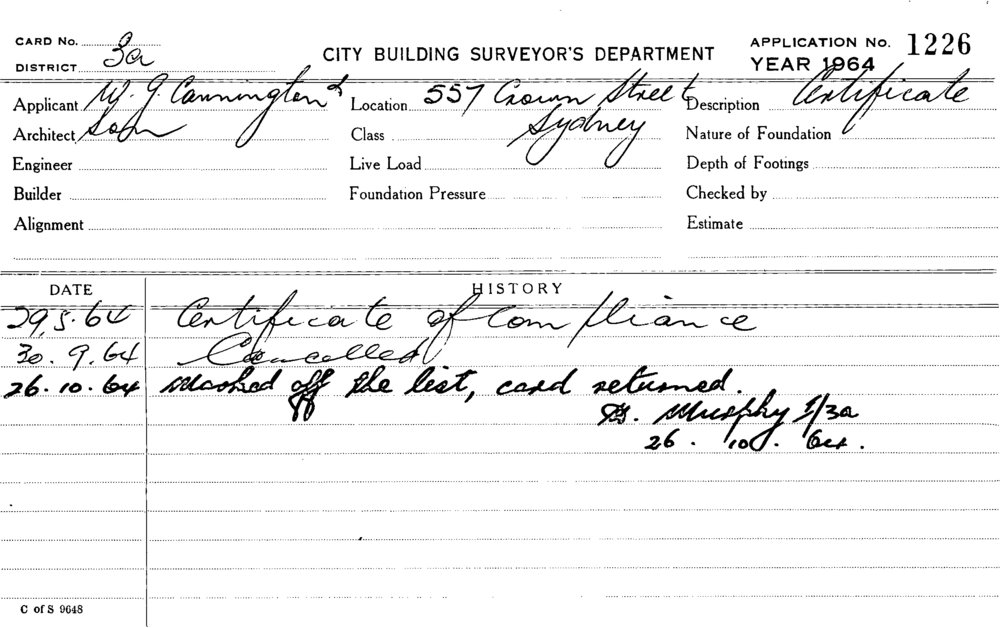 CARD No.
DISTRICT 3a
CITY BUILDING SURVEYOR'S DEPARTMENT
APPLICATION No. 1226
YEAR 1964
Applicant W. J. Cannington &
Location 557 Crown Street
Description Certificate
Architect Son
Class Sydney
Nature of Foundation
Engineer
Live Load
Depth of Footings
Builder
Foundation Pressure
Checked by
Alignment
Estimate
DATE HISTORY
29.5.64 Certificate of Compliance
30.9.64 Cancelled
26.10.64 Marked off the list, card returned.
Murphy 1/3a
26.10.64.
C of S 9648